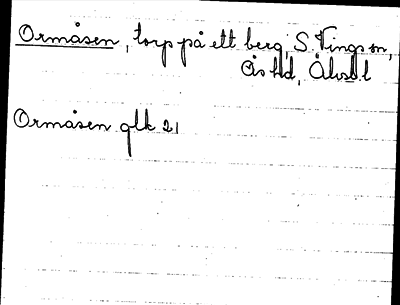 Ormåsen, torp på ett berg, S. Vings sn,
Ås hd, Älvsb. l
Ormåsen glk 21